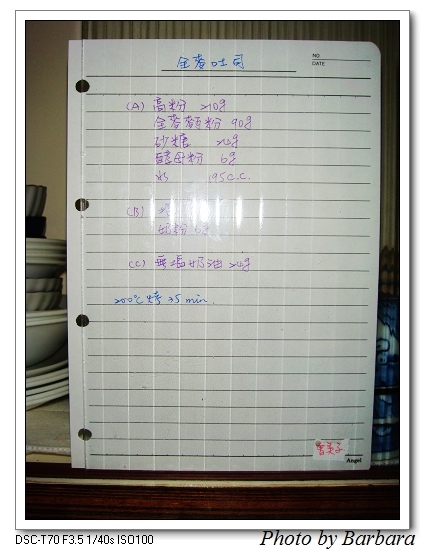 全麥吐司
NO.
DATE
(A) 高粉 210g
全麥麵粉 90g
砂糖 24g
酵母粉 6g
水 195c.c.
(B)
奶粉 6g
(C) 無鹽奶油 24g
200℃烤35min.
曾美子
Angel
DSC-T70 F3.5 1/40s ISO100
Photo by Barbara